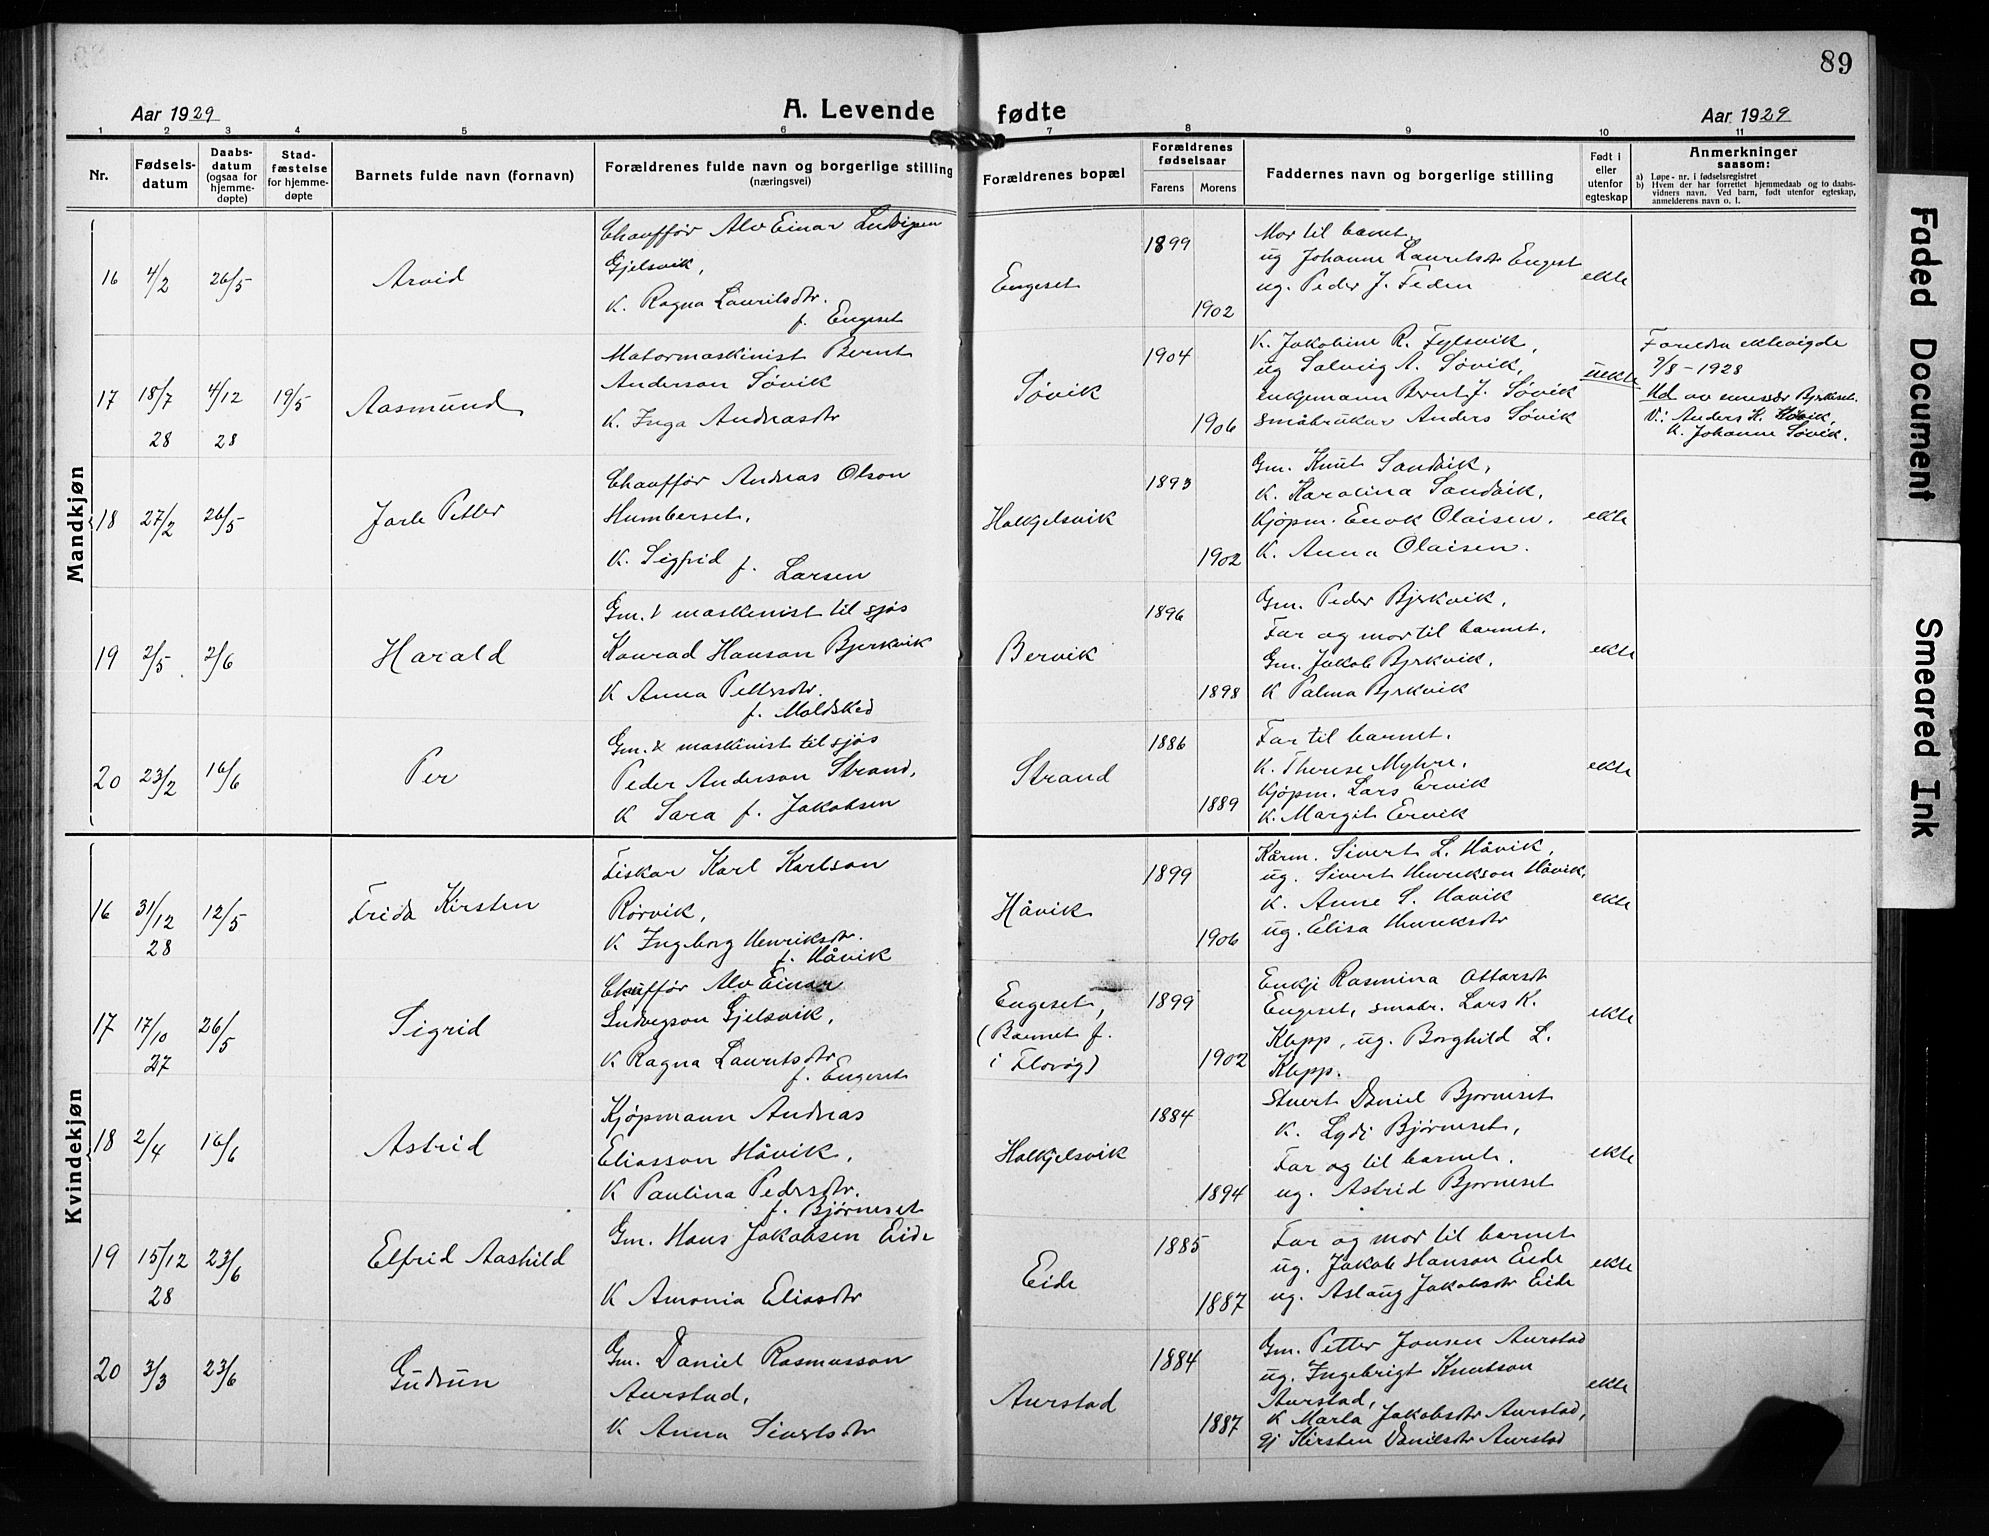 89
Aar 1929
A. Levende fødte
Aar 1929
1 2 3 4 5 6 7 8 9 10 11
Nr.
Fødsels-
datum
Daabs-
datum
(ogsaa for
hjemme-
døpte)
Stad-
fæstelse
for hjemme-
døpte
Barnets fulde navn (fornavn)
Forældrenes fulde navn og borgerlige stilling
(næringsvei)
Forældrenes bopæl
Forældrenes
fødselsaar
Farens
Morens
Faddernes navn og borgerlige stilling
Født i
eller
utenfor
egteskap
Anmerkninger
saasom:
a) Løpe-nr. i fødselsregistret
b) Hvem der har forrettet hjemmedaab og to daabs-
vidners navn. Ved barn, født utenfor egteskap,
anmelderens navn o. l.
Mandkjøn
16
4/2
26/5
Arvid
Chauffør Alv Einar Ludvigsen
Gjelsvik,
K. Ragna Lauritsdtr.
f. Engeset
Engeset
1899
1902
Mor til barnet,
ug Johanne Lauritsdtr Engeset
ug. Peder J. Feden
ekte
17
18/7
28
4/12
28
19/5
Aasmund
Motormaskinist Bernt
Anderson Søvik
K. Inga Andreasdtr
Søvik
1904
1906
K. Jakobine R. Fylsvik,
ug Solveig A. Søvik,
enkjemann Bernt J. Søvik
småbrukar Anders Søvik
uekte
Foreldra ektevigde
9/8 - 1928
Bjerkeset.
V.: Anders K. Søvik,
K. Johanne Søvik.
18
27/2
26/5
Jarle Petter
Chauffør Andreas Olson
Humberset,
K. Sigfrid f. Larsen
Holkjelsvik
1893
1902
Gm. Knut Sandvik,
K. Karolina Sandvik,
Kjøpm. Enok Olaisen.
K. Anna Olaisen.
ekte
19
2/5
2/6
Harald
Gm. & maskinist til sjøs
Konrad Hanson Bjerkvik
K Anna Pettersdtr.
f. Moldsked
Bervik
1896
1898
Gm. Peder Bjerkvik,
Far og mor til barnet.
Gm. Jakob Bjerkvik,
K Palma Bjerkvik
ekte
20
23/2
16/6
Per
Gm. & maskinist til sjøs
Peder Anderson Strand,
K Sara f. Jakobsen
Strand
1886
1889
Far til barnet.
K. Therese Myhre.
Kjøpm. Lars Ervik
K. Margit Ervik
ekte
Kvindekjøn
16
31/12
28
12/5
Frida Kirsten
Fiskar Karl Karlson
Rørvik,
K Ingeborg Henriksdtr.
f. Håvik
Håvik
1899
1906
Kårm. Sivert L. Håvik,
ug. Sivert Henrikson Håvik,
K. Anne S. Håvik
ug. Elisa Henriksdtr
ekte
17
17/10
27
26/5
Sigrid
Chauffør Alv Einar
Ludvigson Gjelsvik,
K Ragna Lauritsdtr
f. Engeset
Engeset,
(Barnet f.
i Florøy)
1899
1902
Enkje Rasmina Ottarsdtr
Engeset, småbr. Lars K.
Klepp, ug. Borghild L.
Klepp.
ekte
18
2/4
16/6
Astrid
Kjøpmann Andreas
Eliasson Håvik,
K Paulina Pedersdtr.
f. Bjørneset
Holkjelsvik
1884
1894
Stuert Daniel Bjørneset
K. Lydi Bjørneset,
Far og til barnet.
ug. Astrid Bjørneset
ekte
19
15/12
28
23/6
Elfrid Aashild
Gm. Hans Jakobsen Eide
K Amonia Eliasdtr
Eide
1885
1887
Far og mor til barnet
ug. Jakob Hanson Eide
ug. Aslaug Jakobsdtr Eide
ekte
20
3/3
23/6
Gudrun
Gm. Daniel Rasmusson
Aurstad,
K Anna Sivertsdtr
Aurstad
1884
1887
Gm. Petter Jonsen Aurstad
ug. Ingebrigt Knutson
Aurstad,
K Marta Jakobsdtr Aurstad,
gj Kirsten Danielsdtr Aurstad
ekte
Faded Document
Smeared Ink